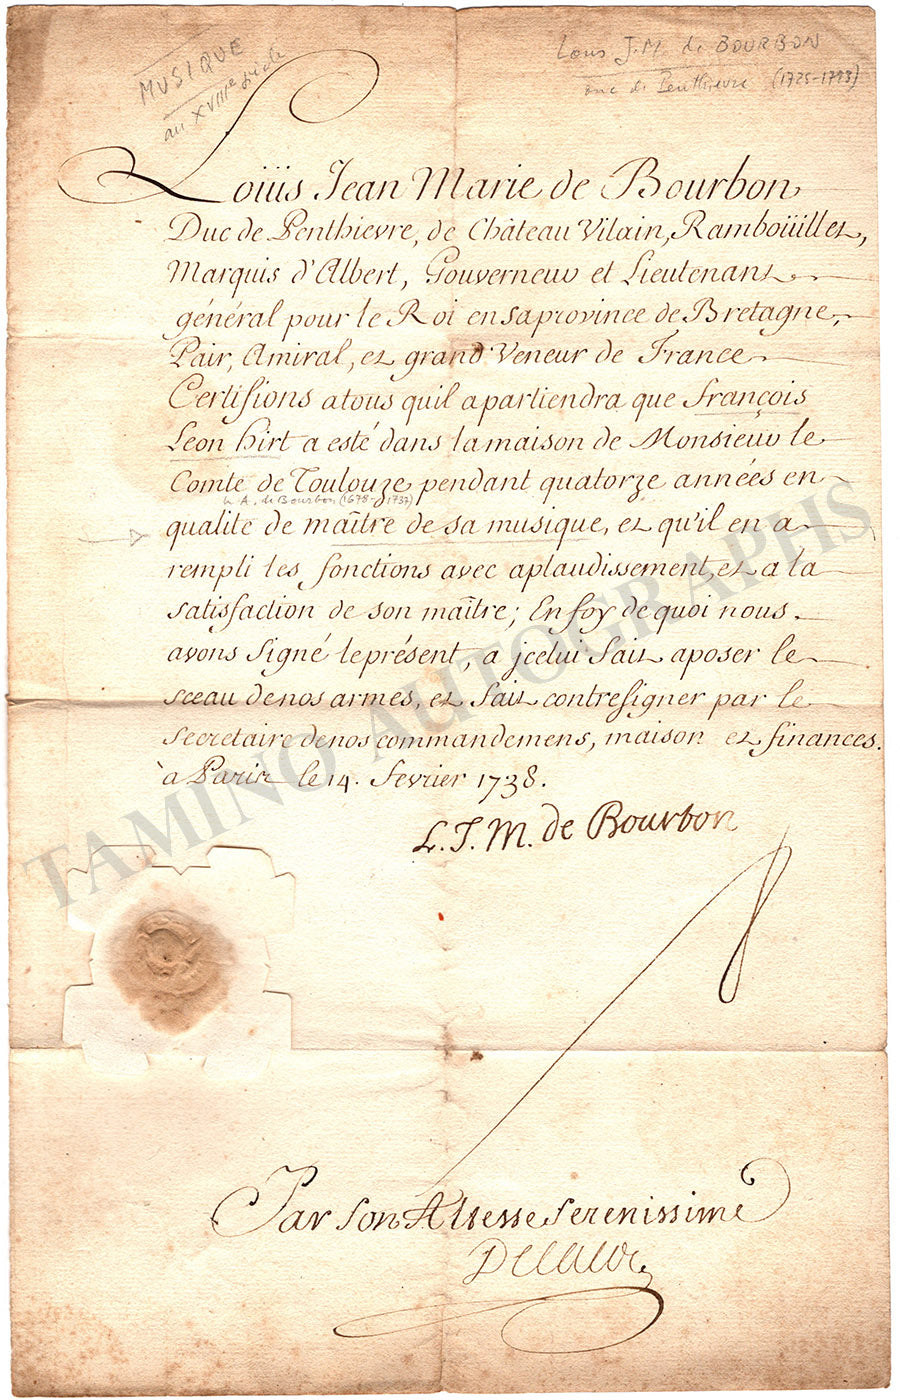 MUSIQUE
au XVIIIe siècle
Louis J.M. de BOURBON
duc de Penthièvre (1725-1793)
Loüis Jean Marie de Bourbon
Duc de Penthievre, de Château Vilain, Ramboüillet,
Marquis d'Albert, Gouverneur et Lieutenant
général pour le Roi en sa province de Bretagne,
Pair, Amiral, et grand Veneur de France
Certifions a tous quil apartiendra que François
Leon hirt a esté dans la maison de Monsieur le
Comte de Toulouze pendant quatorze années en
L. A. de Bourbon (1678-1737)
qualité de maître de sa musique, et qu'il en a
rempli les fonctions avec aplaudissement, et a la
satisfaction de son maître; En foy de quoi nous
avons signé le présent, a jcelui fait aposer le
sceau de nos armes, et fait contresigner par le
Secretaire de nos commandemens, maison et finances.
à Paris le 14. fevrier 1738.
L. J. M. de Bourbon
Par son Altesse serenissime
TAMINO AUTOGRAPHS